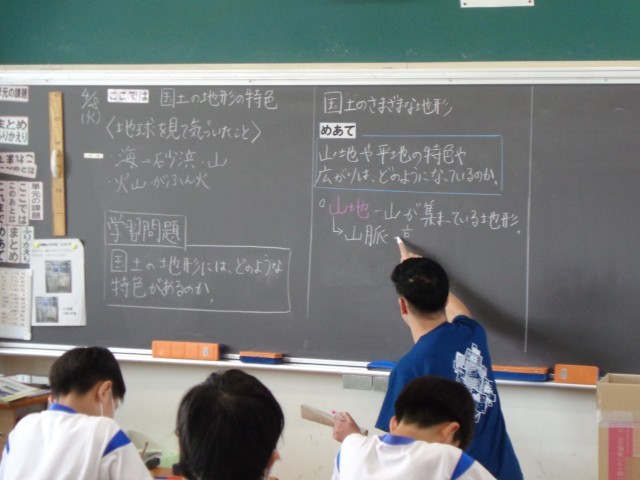 ここでは 国土の地形の特色
〈地球を見て気づいたこと〉
・海→砂浜・山
・火山がふん火
学習問題
国土の地形には、どのような
特色があるのか。
国土のさまざまな地形
めあて
山地や平地の特色や
広がりは、どのようになっているのか。
山地-山が集まっている地形。
↳山脈・高
単元の課題
まとめ
ふりかえり
単元の課題
ここでは
まとめ
めあて